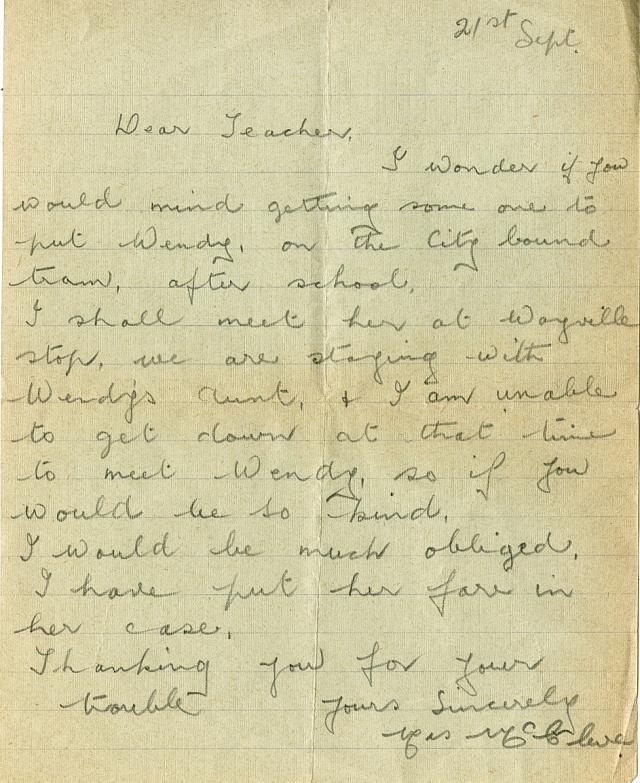 21st Sept.
Dear Teacher,
I wonder if you
would mind getting some one to
put Wendy, on the City bound
tram, after school,
I shall meet her at Wayville
stop, we are staying with
Wendy's Aunt, & I am unable
to get down at that time
to meet Wendy, so if you
would be so kind,
I would be much obliged,
I have put her fare in
her case,
Thanking you for your
trouble Yours Sincerely
Mrs